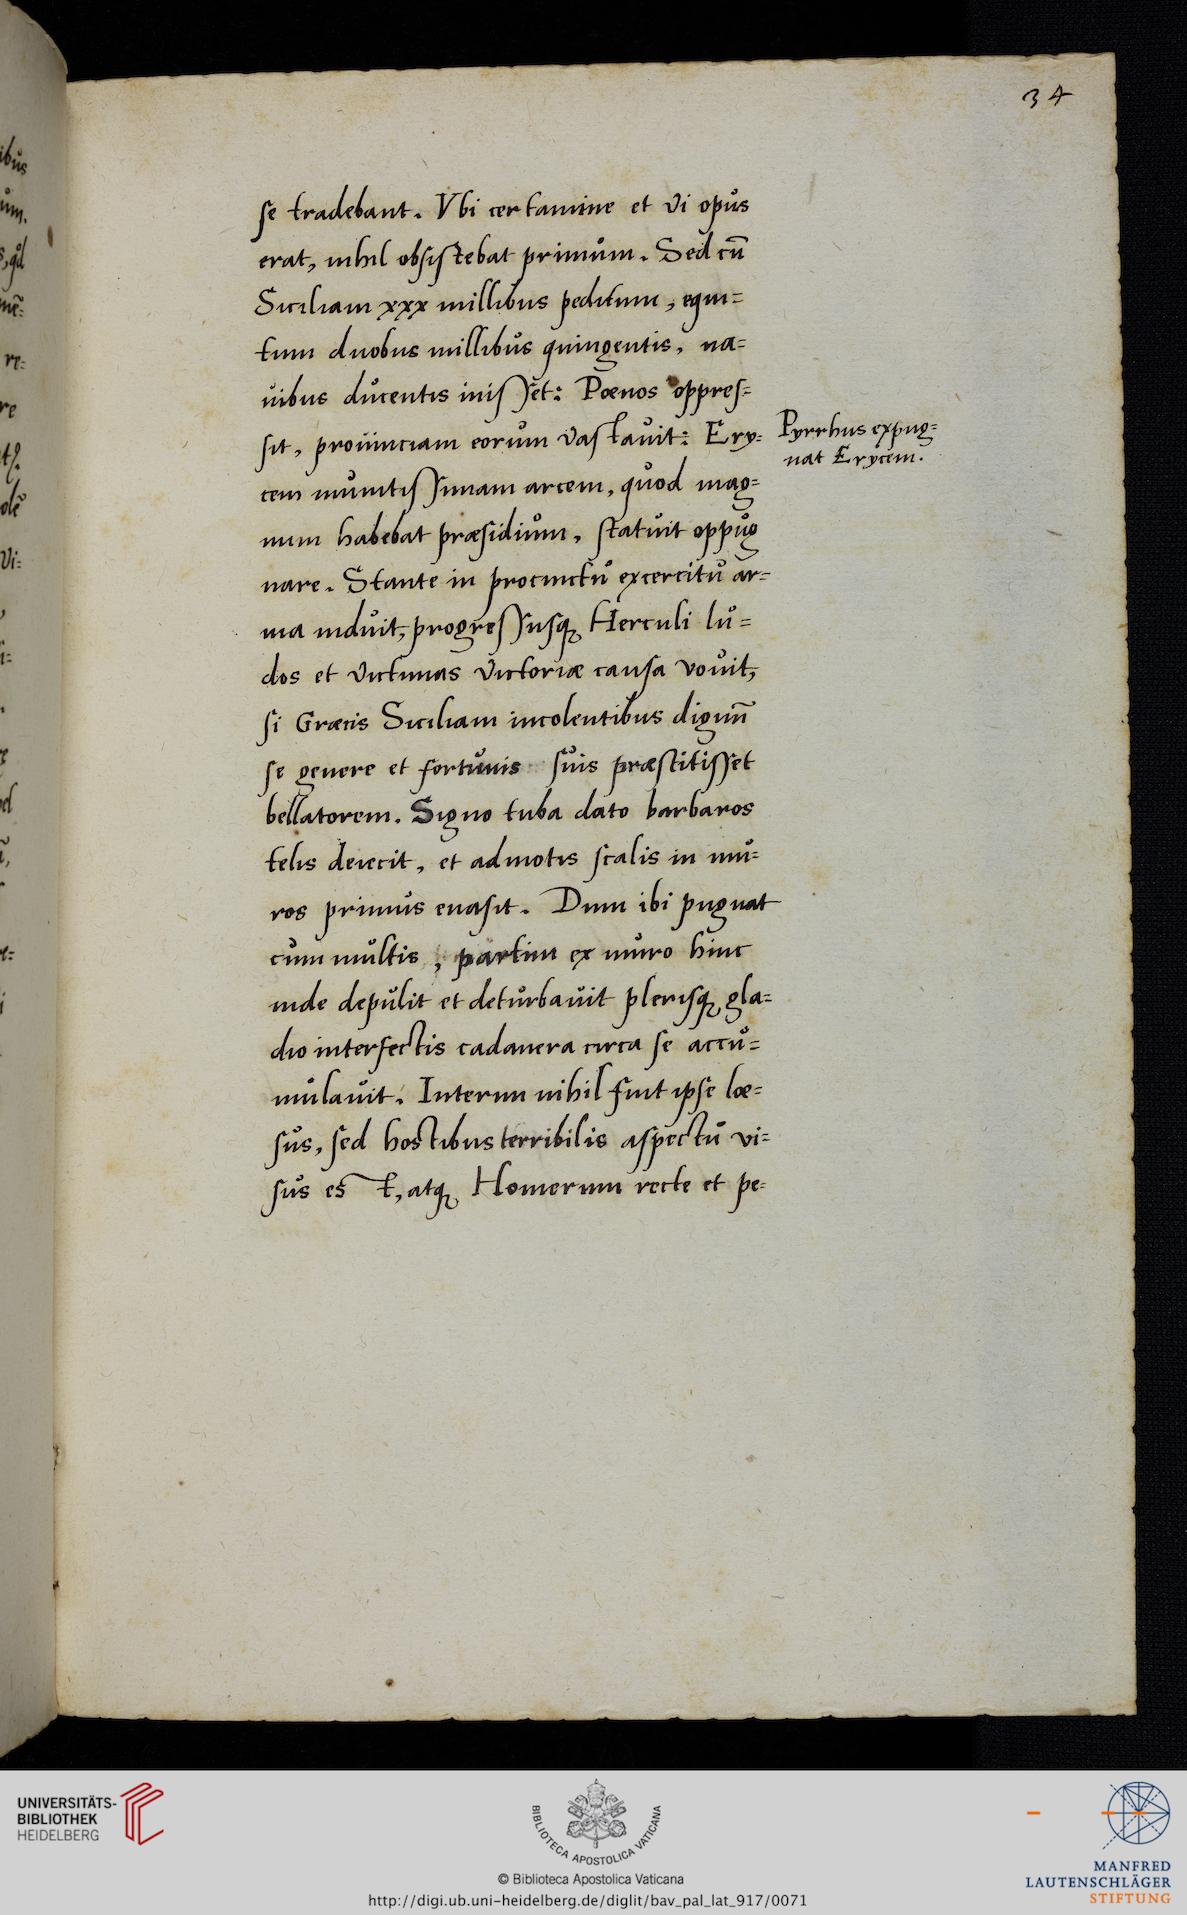 34
se tradebant. Vbi certamine et vi opus
erat, nihil obsistebat primum. Sed cũ
Siciliam xxx millibus peditum, equi=
tum duobus millibus quingentis, na=
uibus ducentis inisset: Pœnos oppres=
sit, prouinciam eorum vastauit: Ery=
cem munitissimam arcem, quod mag=
num habebat præsidium, statuit oppug
nare. Stante in procinctu excercitu ar=
ma induit, progressusq; Herculi lu=
dos et victimas victoriæ causa vouit,
si Græcis Siciliam incolentibus dignũ
se genere et fortunis suis præstitisset
bellatorem. Signo tuba dato barbaros
telis deiecit, et admotis scalis in mu=
ros primus euasit. Dum ibi pugnat
cum multis, partim ex muro hinc
inde depulit et deturbauit plerisq; gla=
dio interfectis cadauera circa se accu=
mulauit. Interim nihil fuit ipse læ=
sus, sed hostibus terribilis aspectu vi=
sus est, atq; Homerum recte et pe=
Pyrrhus expug=
nat Erycem.
UNIVERSITÄTS-
BIBLIOTHEK
HEIDELBERG
BIBLIOTECA APOSTOLICA VATICANA
© Biblioteca Apostolica Vaticana
http://digi.ub.uni-heidelberg.de/diglit/bav_pal_lat_917/0071
MANFRED
LAUTENSCHLÄGER
STIFTUNG